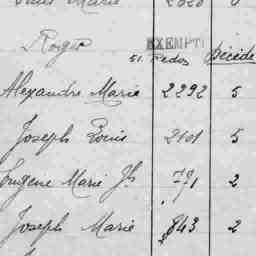 Marie 2020
Roger EXEMPT
51. Décédé
Alexandre Marie 2292 5
Joseph Louis 2101 5
Eugene Marie Jh 791 2
Joseph Marie 843 2